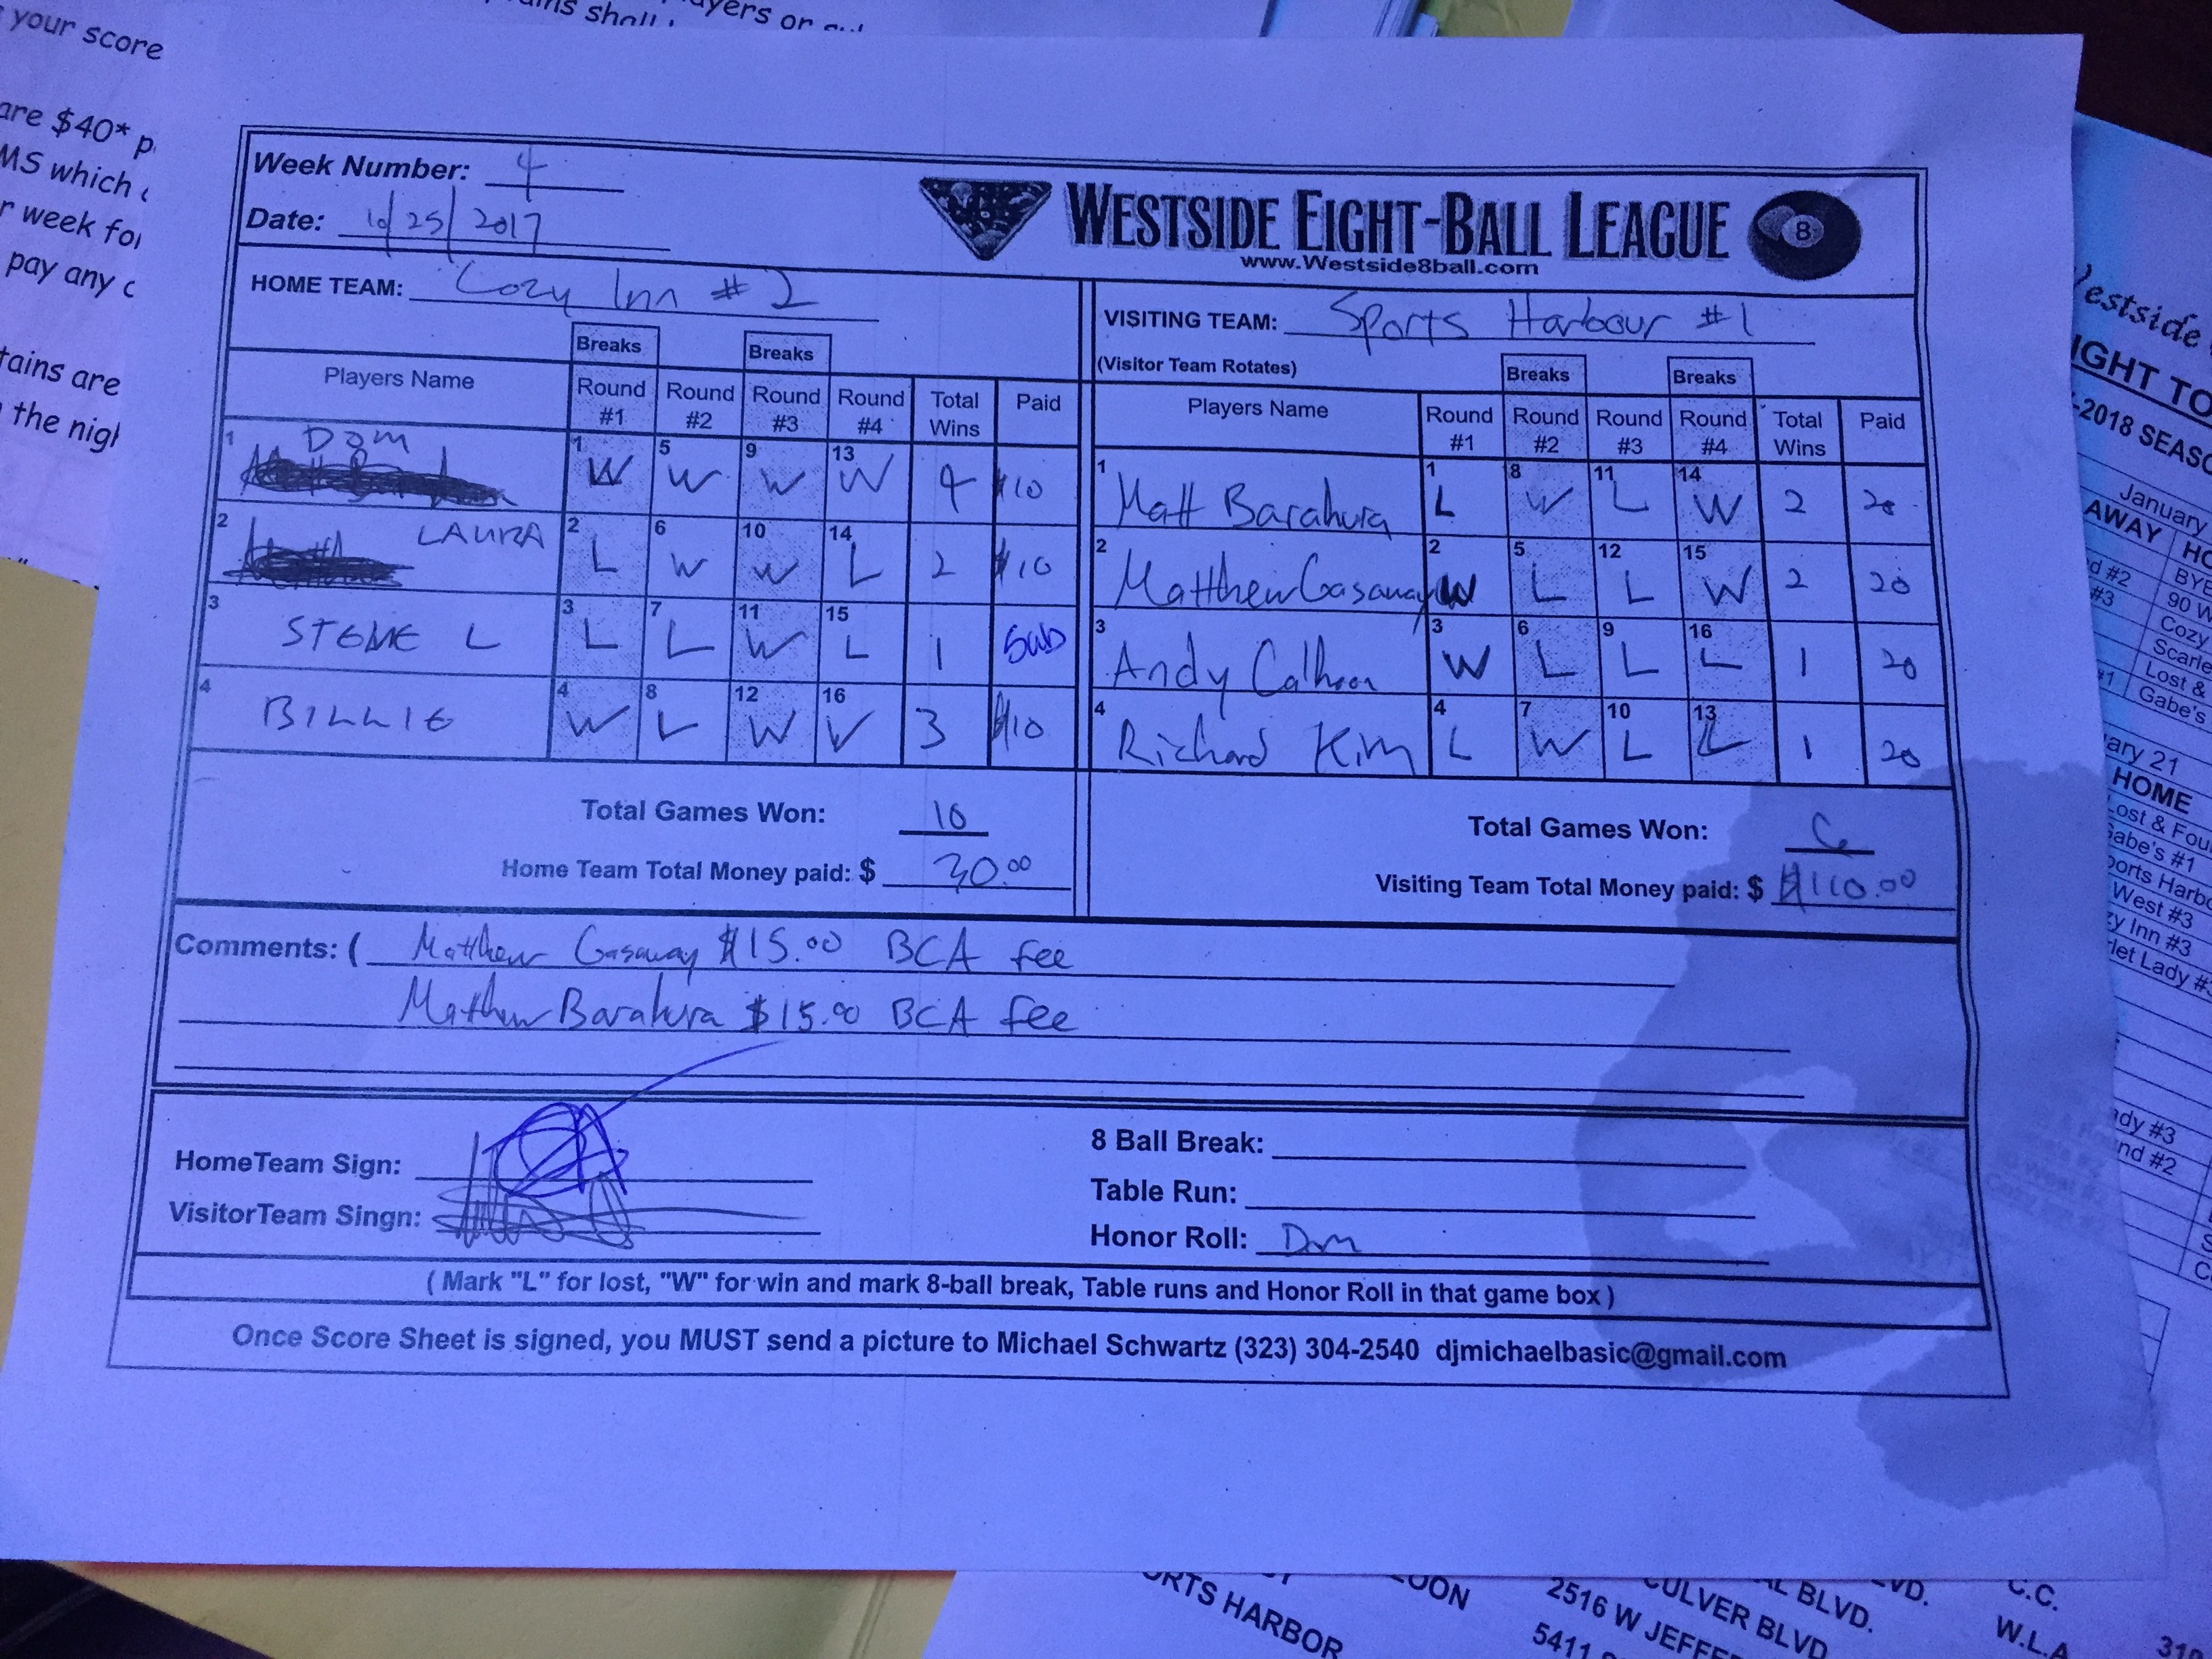 your score
are $40* p
MS which
r week for
pay any c
tains are
the nigh
ins shall
yers or
Week Number: 4
Date: 10/25/2017
WESTSIDE EIGHT-BALL LEAGUE
8
www.Westside8ball.com
HOME TEAM: Cozy Inn #2
VISITING TEAM: Sports Harbour #1
(Visitor Team Rotates)
Breaks Breaks
Players Name Round #1 Round #2 Round #3 Round #4 Total Wins Paid
1 Dom 1 W 5 W 9 W 13 W 4 $10
2 LAURA 2 L 6 W 10 W 14 L 2 $10
3 STEVE L 3 L 7 L 11 W 15 L 1 Sub
4 BILLIE 4 W 8 L 12 W 16 W 3 $10
Total Games Won: 10
Home Team Total Money paid: $ 30.00
Breaks Breaks
Players Name Round #1 Round #2 Round #3 Round #4 Total Wins Paid
1 Matt Barahura 1 L 8 W 11 L 14 W 2 20
2 Matthew Gasaway 2 W 5 L 12 L 15 W 2 20
3 Andy Calhoon 3 W 6 L 9 L 16 L 1 20
4 Richard Kim 4 L 7 W 10 L 13 L 1 20
Total Games Won: 6
Visiting Team Total Money paid: $ $110.00
Comments: ( Matthew Gasaway $15.00 BCA fee
Matthew Barahura $15.00 BCA fee
HomeTeam Sign:
VisitorTeam Singn:
8 Ball Break:
Table Run:
Honor Roll: Dom
( Mark "L" for lost, "W" for win and mark 8-ball break, Table runs and Honor Roll in that game box )
Once Score Sheet is signed, you MUST send a picture to Michael Schwartz (323) 304-2540 djmichaelbasic@gmail.com
estside
IGHT TO
-2018 SEASO
January
AWAY HO
d #2 BYE
#3 90 W
Cozy
Scarle
Lost &
#1 Gabe's
ary 21
HOME
ost & Fou
abe's #1
orts Harbo
West #3
zy Inn #3
let Lady #3
dy #3
nd #2
ORTS HARBOR
OON
2516 W JEFFE
5411
CULVER BLVD
AL BLVD.
VD.
C.C.
W.L.A
310